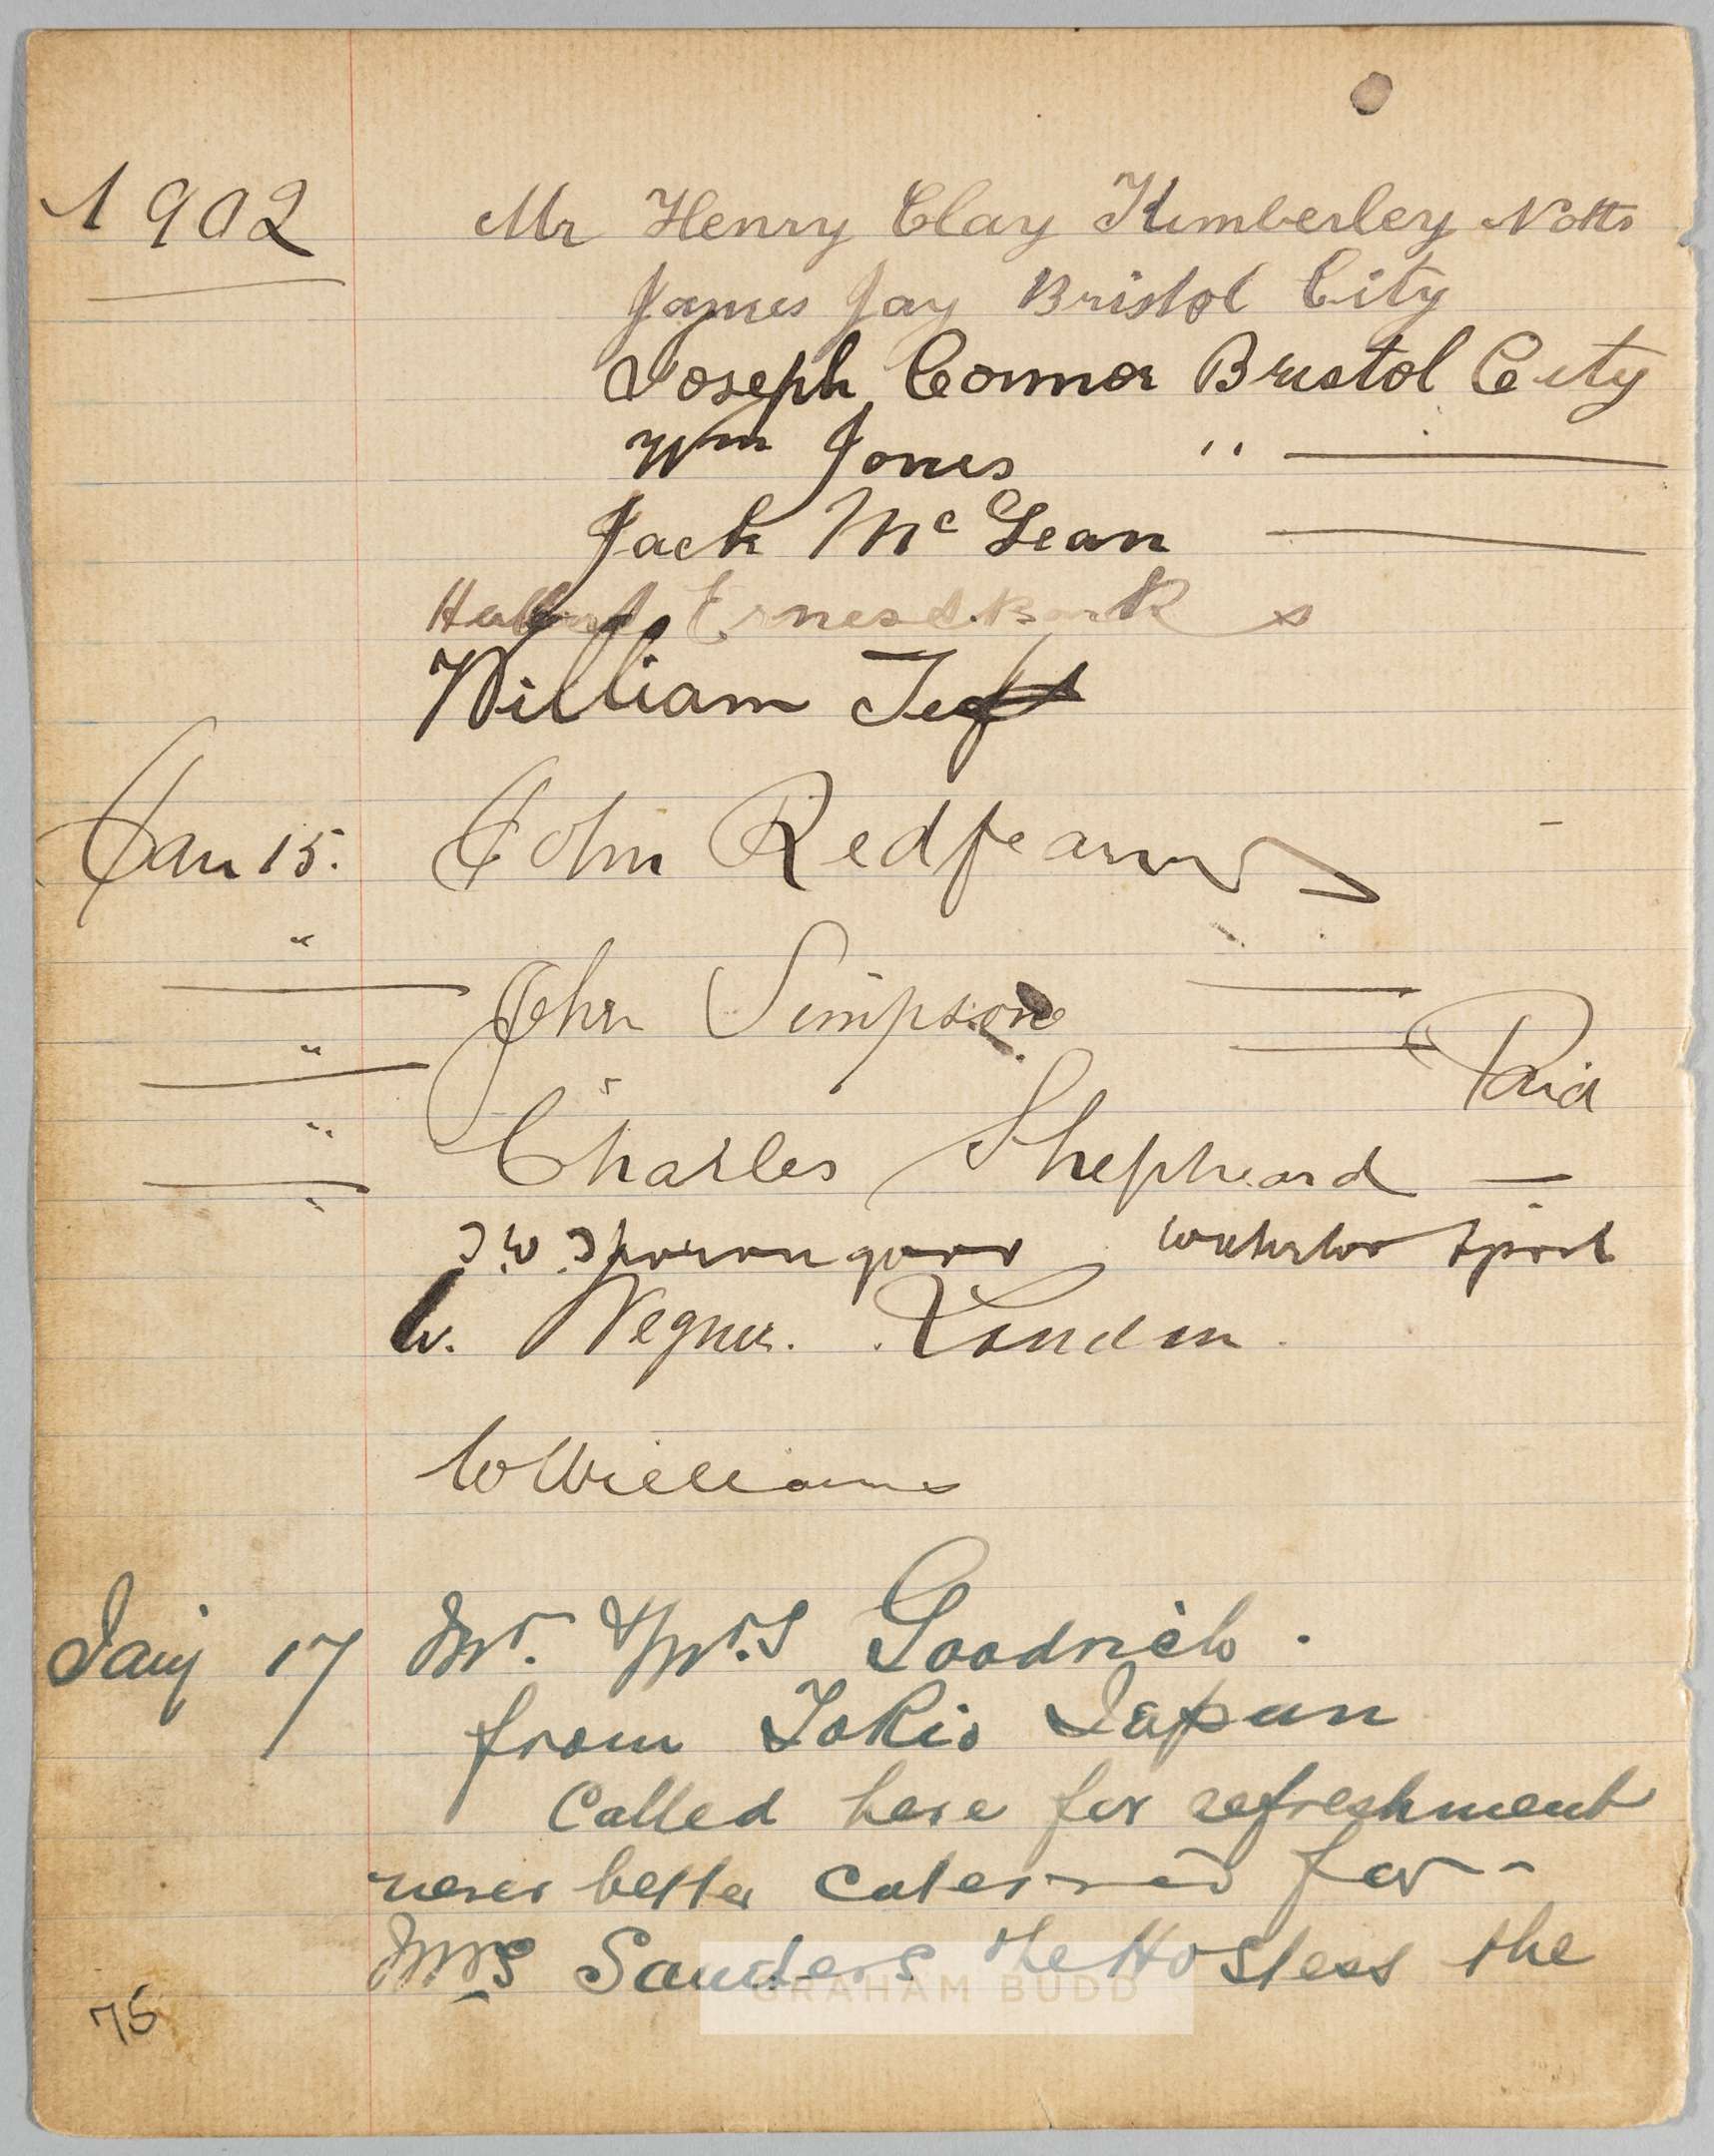 1902 Mr Henry Clay Kimberley Notts
James Jay Bristol City
Joseph Connor Bristol City
Wm Jones "
Jack McLean
Ernest Bark
William Tuft
Jan 15. John Redfearn
" John Simpson
" Paid
" Charles Shepheard
J. W.
W. Wegner. London.
W Williams
Jany 17 Mr. & Mrs Goodrich.
from Tokio Japan
Called here for refreshment
never better caterred for
Mrs Sanders the Hostess the
GRAHAM BUDD
75